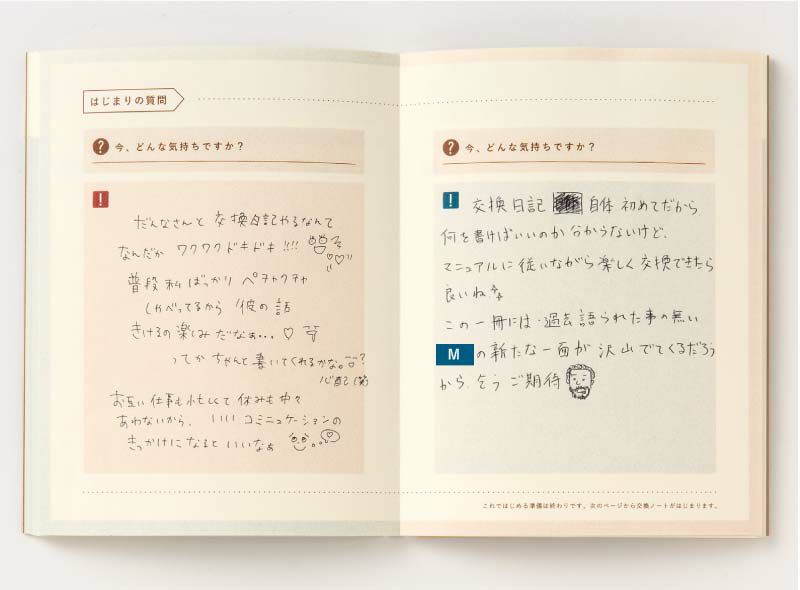 はじまりの質問
? 今、どんな気持ちですか?
!
だんなさんと 交換日記やるなんて
なんだか ワクワクドキドキ !!!
普段 私 ばっかり ペチャクチャ
しゃべってるから 彼の話
きけるの楽しみ だなぁ... ♡
ってか ちゃんと 書いてくれるかな。?
心配 (笑)
お互い 仕事も 忙しくて 休みも 中々
あわないから、 いい コミニュケーションの
きっかけに なると いいなぁ
? 今、どんな気持ちですか?
!
交換日記 自体 初めてだから
何を書けばいいのか 分からないけど、
マニュアルに 従いながら 楽しく 交換できたら
良いね
この一冊には 過去 語られた事の無い
M の新たな一面が 沢山 でてくるだろう
から、 ご期待
これではじめる準備は終わりです。次のページから交換ノートがはじまります。